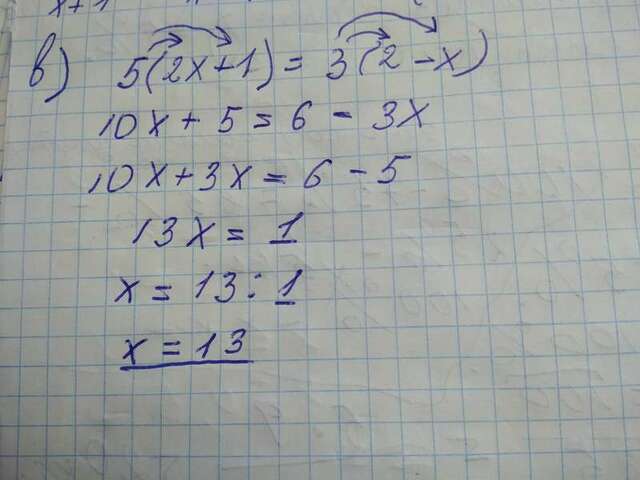 x+1
в) 5(2x+1) = 3(2-x)
10x+5=6-3x
10x+3x=6-5
13x=1
x=13:1
x=13